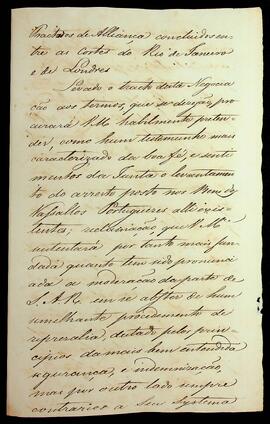 Tractados de Alliança concluidos en-
tre as Cortes do Rio de Janeiro
e de Londres
Levado o tracto desta Negocia-
ção aos termos, que se desejão, pro-
curará V. Mce habilmente preten-
der, como hum testemunho mais
caracterizado da boa fé, e senti-
mentos da Junta o levantamen-
to do arresto posto nos Bens dos
Vassallos Portuguezes alli exis-
tentes; reclamação que V. Mce
sustentará por tanto mais fun-
dada quanto tem sido pronunci-
ada a moderação da parte de
S. A. R. em se abster de hum
semelhante procedimento de
represalia, dictado pelos prin-
cipios da mais bem entendida
segurança, e indemnização,
mas por outro lado sempre
contrarios a Seu Systema